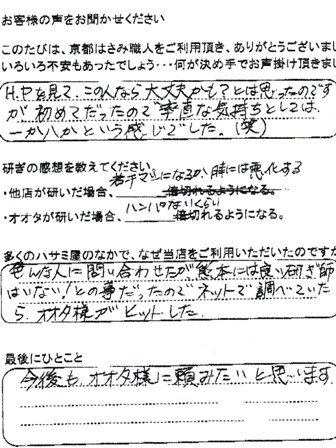 お客様の声をお聞かせください
このたびは、京都はさみ職人をご利用頂き、ありがとうございまし
いろいろ不安もあったでしょう・・・何が決め手でお声掛け頂きま
H.Pを見て、この人なら大丈夫かも?とは思ったのです
が、初めてだったので率直な気持ちとしては、
一か八かという感じでした。(笑)
研ぎの感想を教えてください
若干マシになるか、時には悪化する
・他店が研いだ場合、倍切れるようになる。
ハンパないくらい
・オオタが研いだ場合、倍切れるようになる。
多くのハサミ屋のなかで、なぜ当店をご利用いただいたのですか
色んな人に問い合わせたが熊本には良い研ぎ師
はいない!との事だったのでネットで調べていた
ら、オオタ様がヒットした。
最後にひとこと
今後も、オオタ様に頼みたいと思います